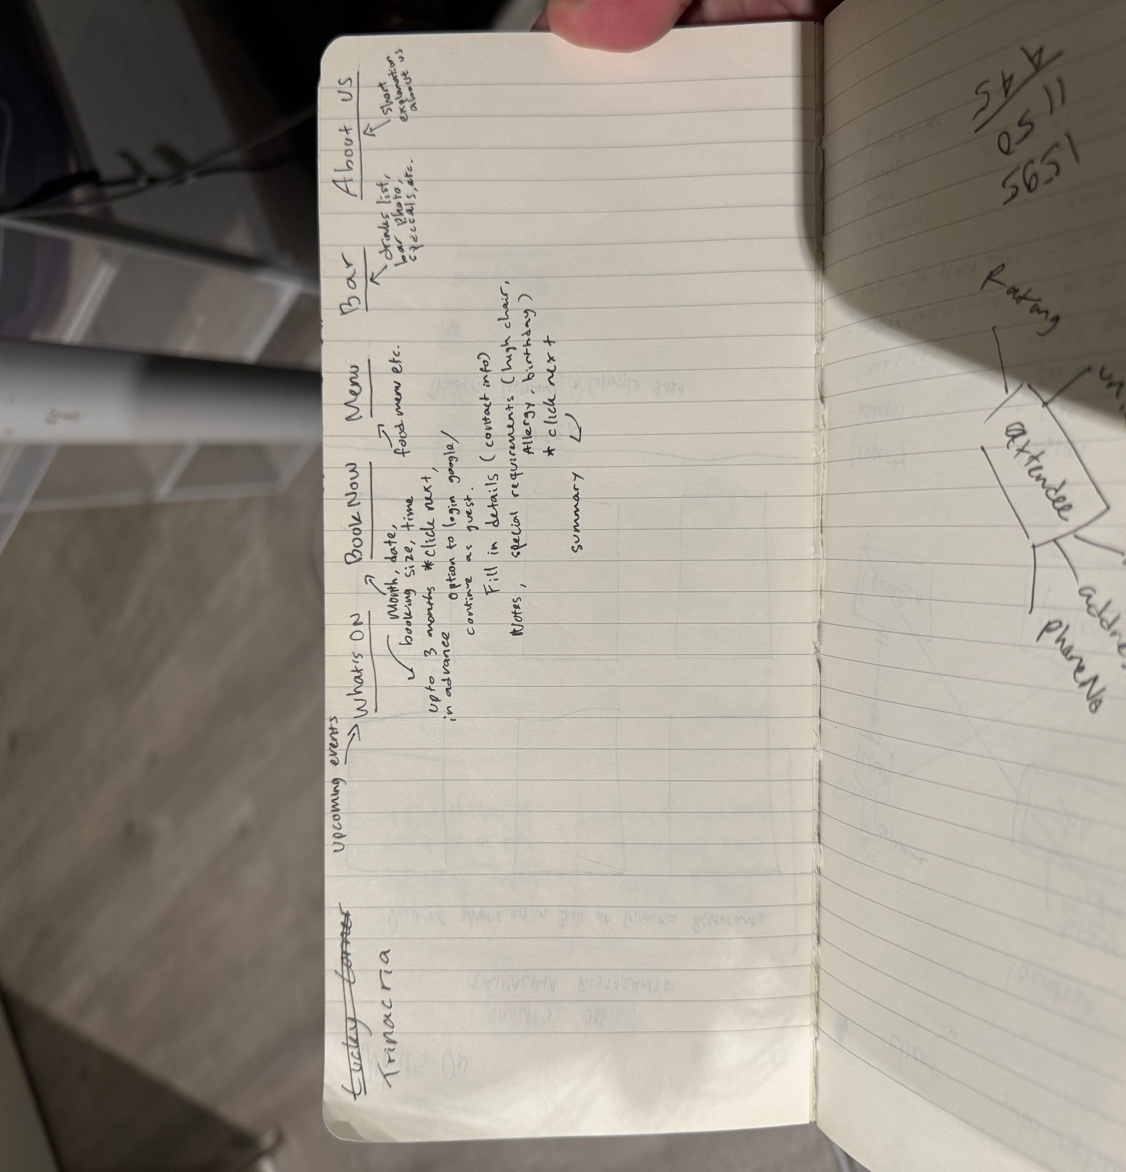 Lucky Corner
Trinacria
upcoming events
What's ON
Book Now
Menu
Bar
About us
Month, date,
booking size, time
upto 3 months *click next,
in advance
option to login google/
continue as guest.
Fill in details (contact info)
Notes, special requirements (high chair,
Allergy, birthday)
* click next
summary
food menu etc.
drinks list,
bar photo,
specials, etc.
short
explanation
about us
A 45
11 50
1595
Rating
attendee
phoneNo